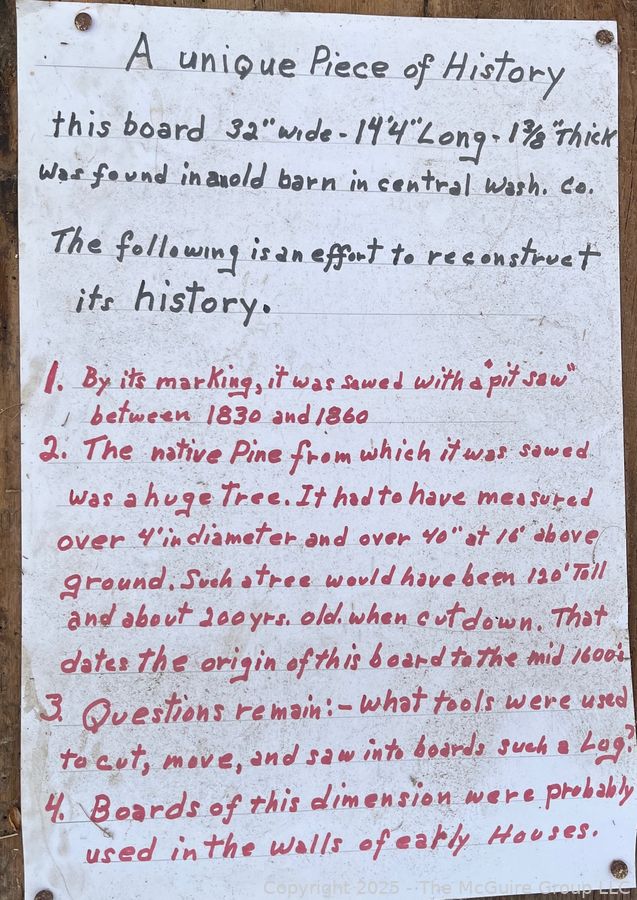 A unique Piece of History
this board 32" wide - 14'4" Long - 1 3/8" Thick
was found in an old barn in central Wash. Co.
The following is an effort to reconstruct
its history.
1. By its marking, it was sawed with a "pit saw"
between 1830 and 1860
2. The native Pine from which it was sawed
was a huge Tree. It had to have measured
over 4' in diameter and over 40" at 16' above
ground. Such a tree would have been 120' Tall
and about 200 yrs. old. when cut down. That
dates the origin of this board to the mid 1600's
3. Questions remain: - what tools were used
to cut, move, and saw into boards such a Log?
4. Boards of this dimension were probably
used in the walls of early Houses.
Copyright 2025 - The McGuire Group LLC